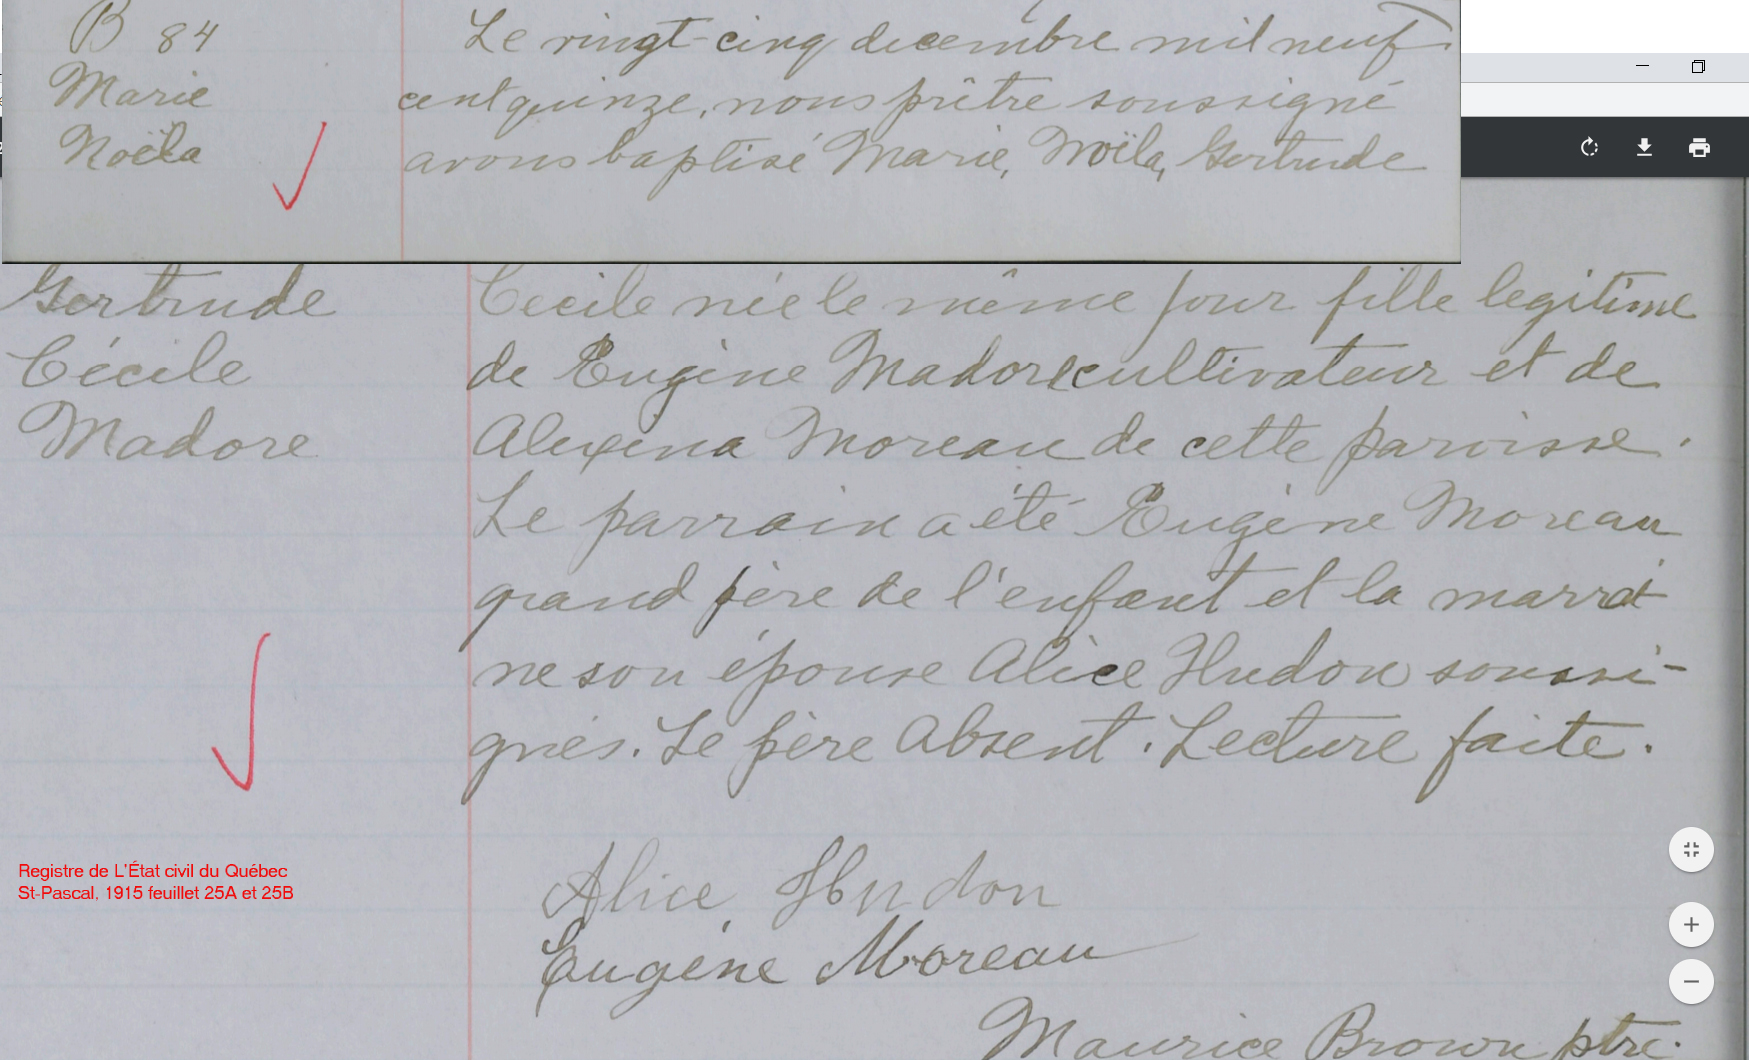 B 84
Marie
Noëla
Le vingt-cinq decembre mil neuf
cent quinze, nous prêtre soussigné
avons baptisé Marie, Noëla, Gertrude
Gertrude
Cécile
Madore
Cecile née le même jour fille legitime
de Eugène Madore cultivateur et de
Alexina Moreau de cette paroisse.
Le parrain a été Eugène Moreau
grand père de l'enfant et la marrai
ne son épouse Alice Hudon soussi-
gnés. Le père Absent. Lecture faite.
Registre de L'État civil du Québec
St-Pascal, 1915 feuillet 25A et 25B
Alice Hudon
Eugène Moreau
Maurice Brown ptre.